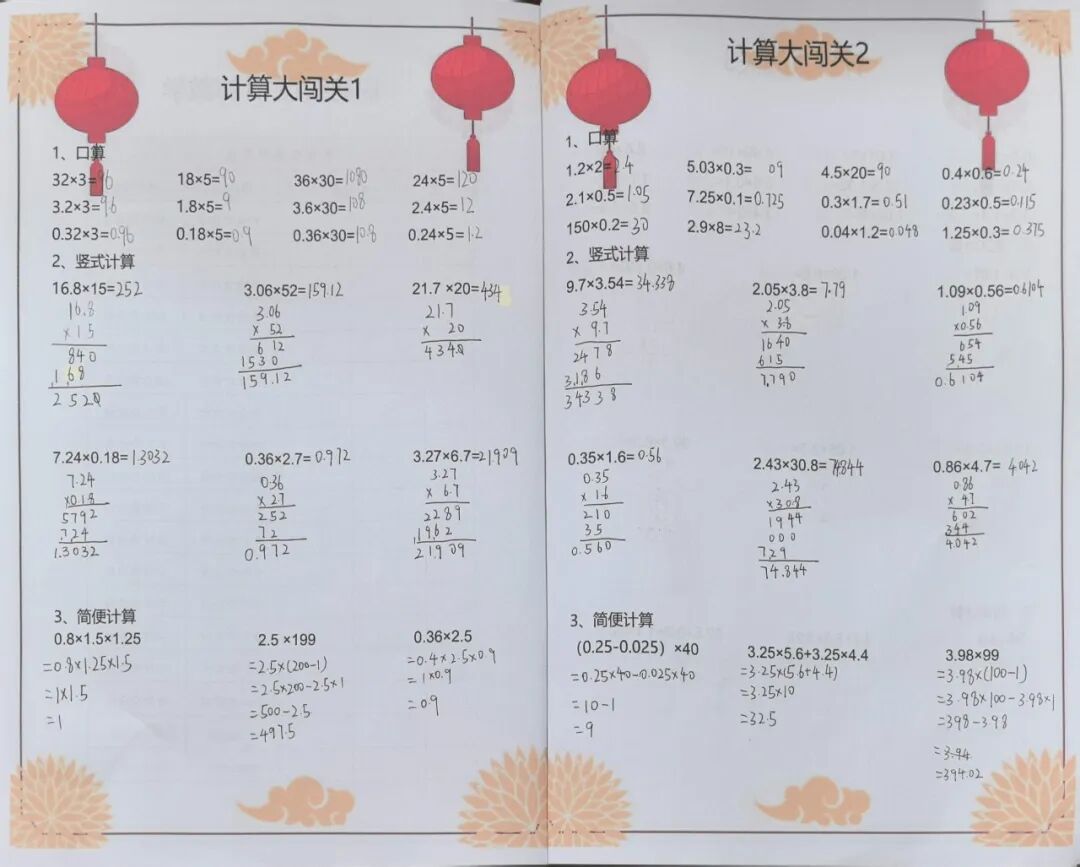 计算大闯关1
1、口算
32×3=96 18×5=90 36×30=1080 24×5=120
3.2×3=9.6 1.8×5=9 3.6×30=108 2.4×5=12
0.32×3=0.96 0.18×5=0.9 0.36×30=10.8 0.24×5=1.2
2、竖式计算
16.8×15=252 3.06×52=159.12 21.7 ×20=434
16.8 3.06 21.7
×15 × 52 × 20
840 612 4340
168 1530
2520 159.12
7.24×0.18=1.3032 0.36×2.7=0.972 3.27×6.7=21.909
7.24 0.36 3.27
×0.18 ×2.7 × 6.7
5792 252 2289
724 72 1962
1.3032 0.972 21.909
3、简便计算
0.8×1.5×1.25 2.5 ×199 0.36×2.5
=0.8×1.25×1.5 =2.5×(200-1) =0.4×2.5×0.9
=1×1.5 =2.5×200-2.5×1 =1×0.9
=1 =500-2.5 =0.9
=497.5
计算大闯关2
1、口算
1.2×2=2.4 5.03×0.3= 09 4.5×20=90 0.4×0.6=0.24
2.1×0.5=1.05 7.25×0.1=0.725 0.3×1.7=0.51 0.23×0.5=0.115
150×0.2=30 2.9×8=23.2 0.04×1.2=0.048 1.25×0.3=0.375
2、竖式计算
9.7×3.54=34.338 2.05×3.8=7.79 1.09×0.56=0.6104
3.54 2.05 1.09
× 9.7 × 3.8 ×0.56
2478 1640 654
3186 615 545
34338 7.790 0.6104
0.35×1.6=0.56 2.43×30.8=74.844 0.86×4.7= 4.042
0.35 2.43 0.86
× 1.6 ×30.8 × 4.7
210 1944 602
35 000 344
0.560 729 4.042
74.844
3、简便计算
（0.25-0.025）×40 3.25×5.6+3.25×4.4 3.98×99
=0.25×40-0.025×40 =3.25×(5.6+4.4) =3.98×(100-1)
=10-1 =3.25×10 =3.98×100-3.98×1
=9 =32.5 =398-3.98
=3.94
=394.02